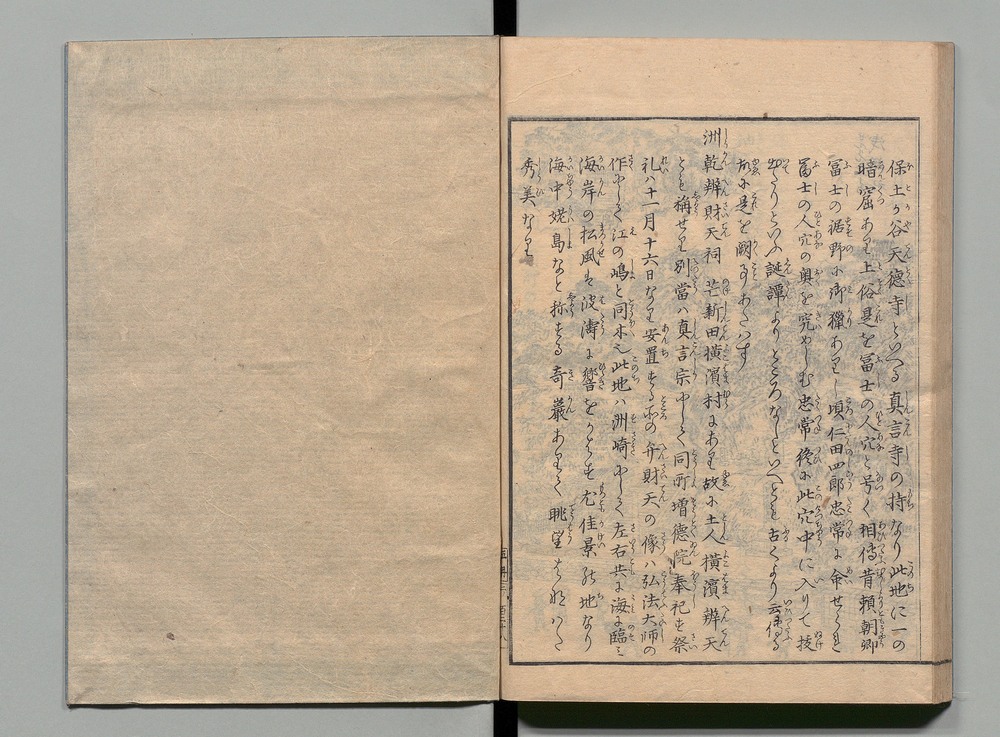 保土ヶ谷天徳寺といへる真言寺の持なり此地に一の
暗窟あり土俗是を冨士の人穴と号く相傳昔頼朝卿
冨士の裾野に御獵ありし頃仁田四郎忠常に命せられ
冨士の人穴の奥を究めしむ忠常終に此穴中に入りて技
出たりといふ誕譚よりところなしといへとも古くより云傳る
故に是を闕事あたはす
洲乾辨財天祠 芒新田横濱村にあり故に土人横濱辨天
とも稱せり別當ハ真言宗にして同所増徳院奉祀を祭
礼ハ十一月十六日なり安置する所の弁財天の像ハ弘法大師の
作にして江の嶋と同木也此地ハ洲崎にして左右共に海に臨ミ
海岸の松風は波濤に響をかはす尤佳景の地なり
海中姥島なと称する奇巌ありて眺望はなはた
秀美なり